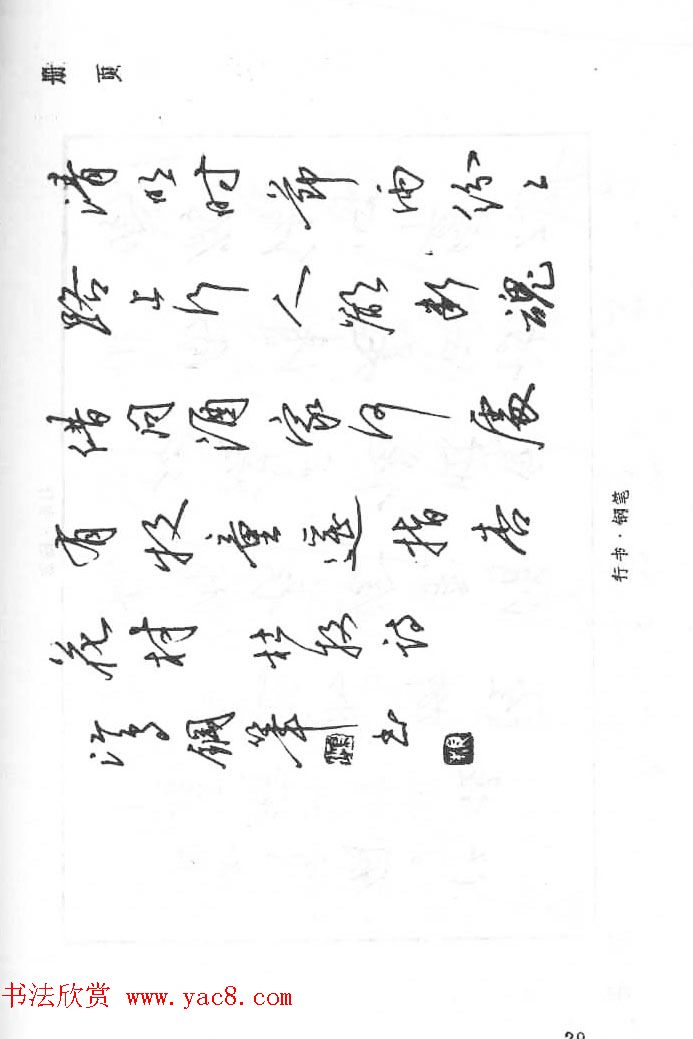 册页
清明时節雨纷々
路上行人欲断魂
借问酒家何處
有牧童遥指杏
花村 杜牧诗
鋼筆书
行书·钢笔
书法欣赏 www.yac8.com